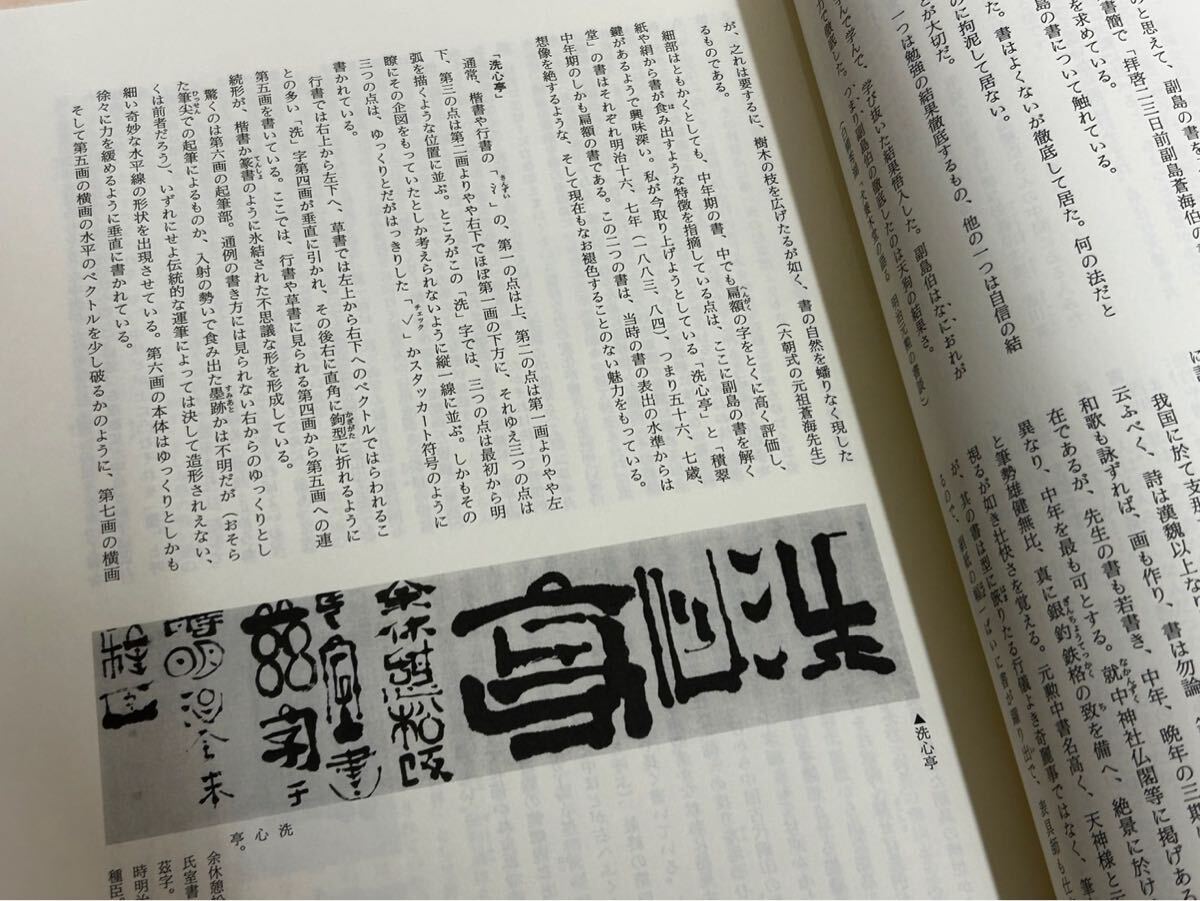 のと思えて、副島の書を
書簡で「拝啓二三日前副島蒼海伯の
を求めている。
島の書について触れている。
た。書はよくないが徹底して居た。何の法だと
のに拘泥して居ない。
とが大切だ。
一つは勉強の結果徹底するもの、他の一つは自信の結
んで学んで、学び抜いた結果悟入した。副島伯はなにおれが
力で徹底した。つまり副島伯の徹底したのは天狗の結果さ。
我国に於て支那
云ふべく、詩は漢魏以上なり
和歌も詠ずれば、画も作り、書は勿論
在であるが、先生の書も若書き、中年、晩年の三期
異なり、中年を最も可とする。就中神社仏閣等に掲げある
と筆勢雄健無比、真に銀鉤鉄格の致を備へ、絶景に於け
視るが如き壮快さを覚える。元勲中書名高く、天神様と
が、其の書は型に嵌りたる行儀よき奇麗事ではなく、筆
るので、
が、之れは要するに、樹木の枝を広げたるが如く、書の自然を蟠りなく現した
るものである。
(六朝式の元祖蒼海先生)
細部はともかくとしても、中年期の書、中でも扁額の字をとくに高く評価し、
紙や絹から書が食み出すような特徴を指摘している点は、ここに副島の書を解く
鍵があるようで興味深い。私が今取り上げようとしている「洗心亭」と「積翠
堂」の書はそれぞれ明治十六、七年(一八八三、八四)、つまり五十六、七歳、
中年期のしかも扁額の書である。この二つの書は、当時の書の表出の水準からは
想像を絶するような、そして現在もなお褪色することのない魅力をもっている。
「洗心亭」
通常、楷書や行書の「氵」の、第一の点は上、第二の点は第一画よりやや左
下、第三の点は第二画よりやや右下でほぼ第一画の下方に、それゆえ三つの点は
弧を描くような位置に並ぶ。ところがこの「洗」字では、三つの点は最初から明
瞭にその企図をもっていたとしか考えられないように縦一線に並ぶ。しかもその
三つの点は、ゆっくりとだがはっきりした「✓」かスタッカート符号のように
書かれている。
行書では右上から左下へ、草書では左上から右下へのベクトルではらわれるこ
との多い「洗」字第四画が垂直に引かれ、その後右に直角に鉤型に折れるように
第五画を書いている。ここでは、行書や草書に見られる第四画から第五画への連
続形が、楷書か篆書のように氷結された不思議な形を形成している。
驚くのは第六画の起筆部。通例の書き方には見られない右からのゆっくりとし
た筆尖での起筆によるものか、入射の勢いで食み出た墨跡かは不明だが(おそら
くは前者だろう)、いずれにせよ伝統的な運筆によっては決して造形されえない、
細い奇妙な水平線の形状を出現させている。第六画の本体はゆっくりとしかも
徐々に力を緩めるように垂直に書かれている。
そして第五画の横画の水平のベクトルを少し破るかのように、第七画の横画
洗心亭
余休憩於松阪
氏室書
茲字于
時明治
種臣
▲洗心亭
洗心亭。
余休憩
氏室書
茲字。
時明治
種臣